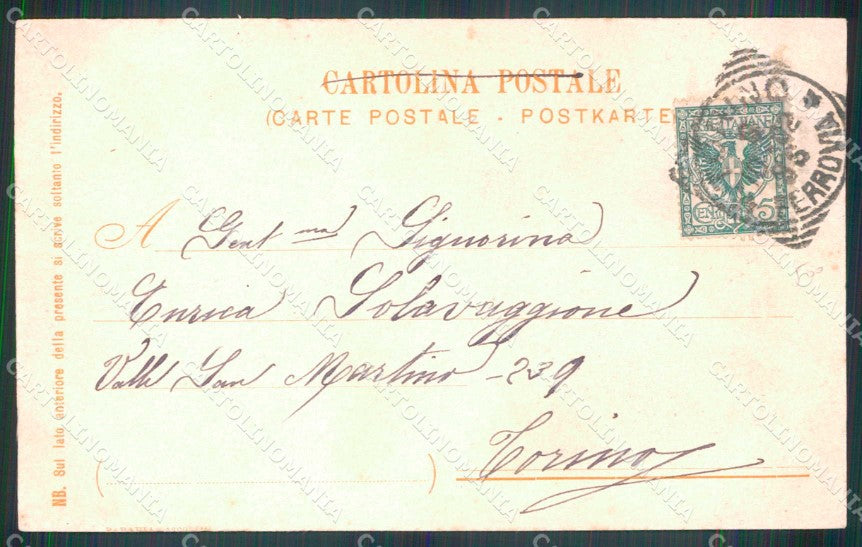 CARTOLINA POSTALE
(CARTE POSTALE - POSTKARTE
POSTE ITALIANE
CENT 5
FERROVIA
A Gent ma Signorina
Enrica Solavaggione
Valle San Martino - 239
Torino
NB. Sul lato anteriore della presente si scrive soltanto l'indirizzo.
CARTOLINOMANIA